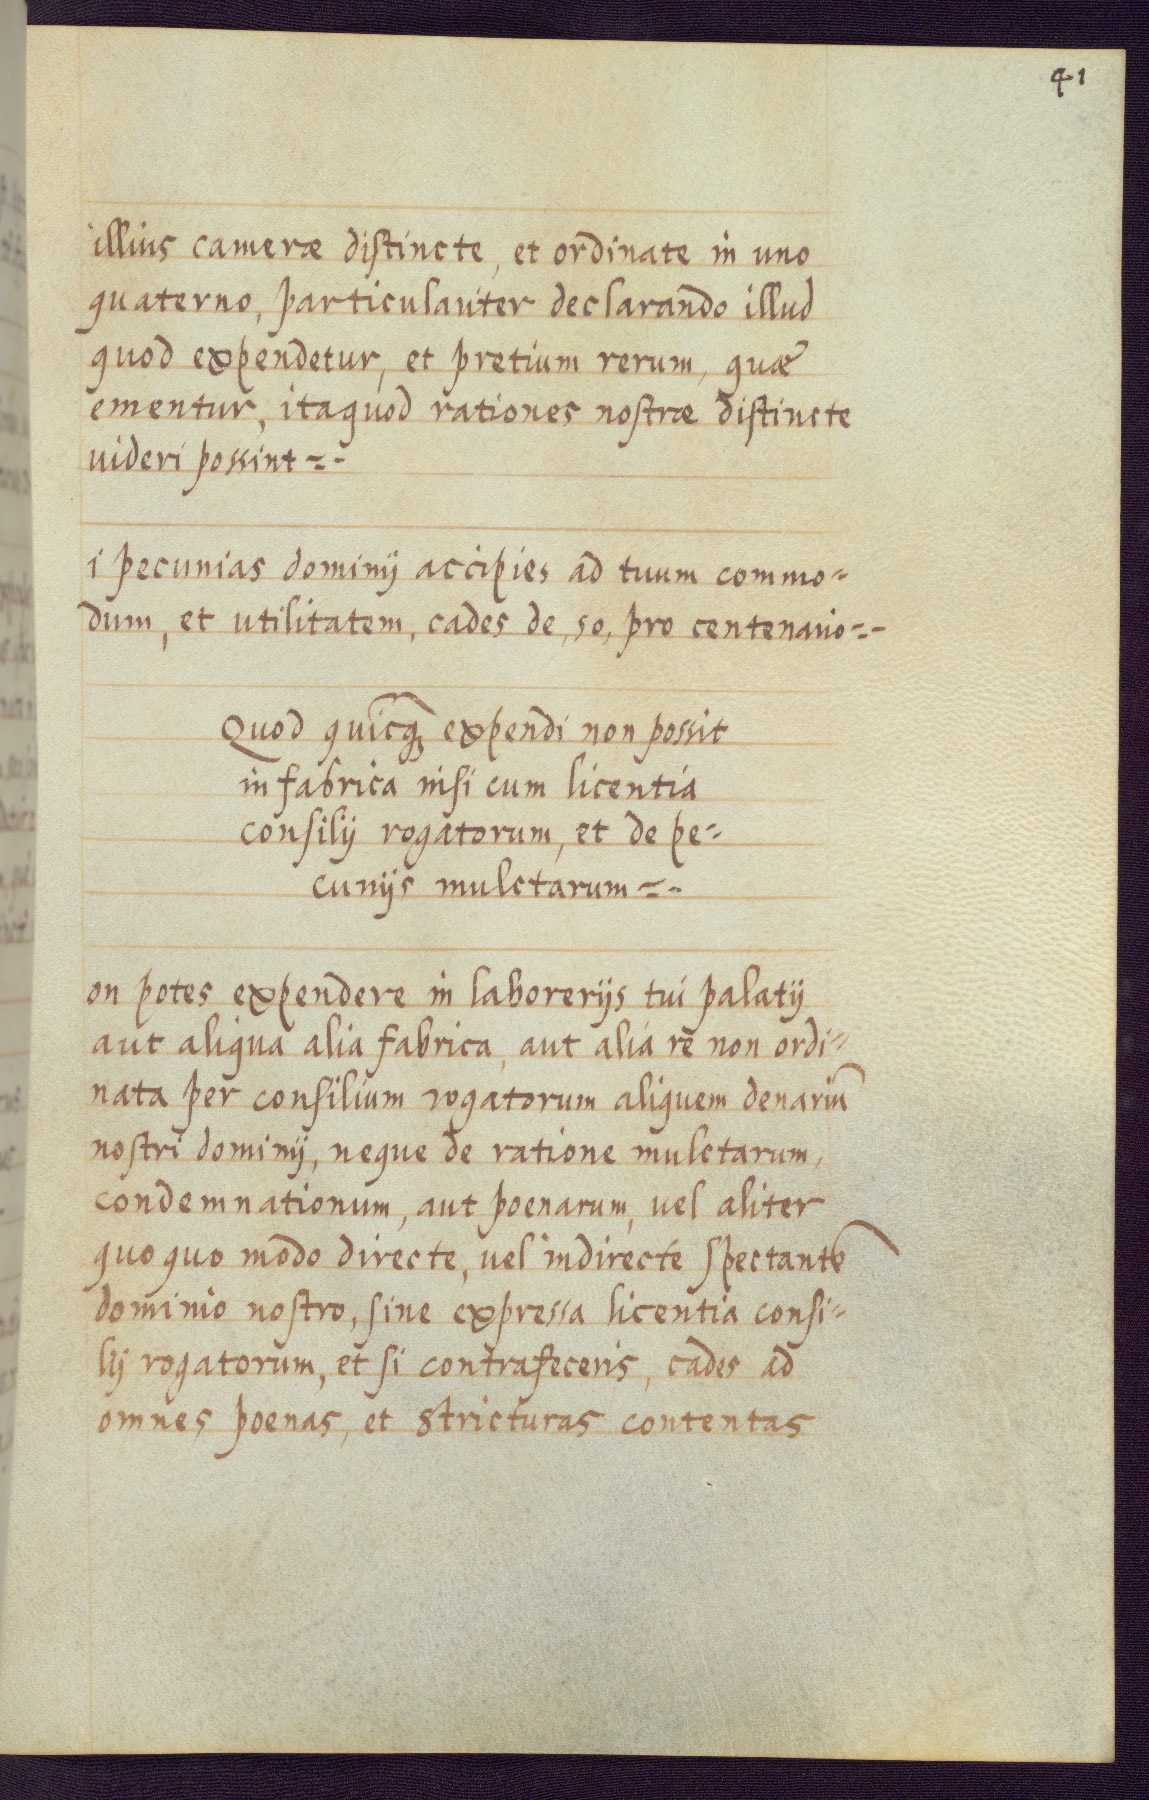 41
illius cameræ distincte, et ordinate in uno
quaterno, particulariter declarando illud
quod expendetur, et pretium rerum, quæ
ementur, itaquod rationes nostræ distincte
uideri possint=-
i pecunias dominij accipies ad tuum commo=
dum, et utilitatem, cades de, so, pro centenario=-
Quod quicq̃ expendi non possit
in fabrica nisi cum licentia
consilij rogatorum, et de pe=
cunijs mulctarum=-
on potes expendere in laborerijs tui palatij
aut aliqua alia fabrica, aut alia rē non ordi=
nata per consilium rogatorum aliquem denariū
nostri dominij, neque de ratione mulctarum,
condemnationum, aut poenarum, uel aliter
quo quo modo directe, uel indirecte spectantē
dominio nostro, sine expressa licentia consi=
lij rogatorum, et si contrafeceris, cades ad
omnes poenas, et stricturas contentas